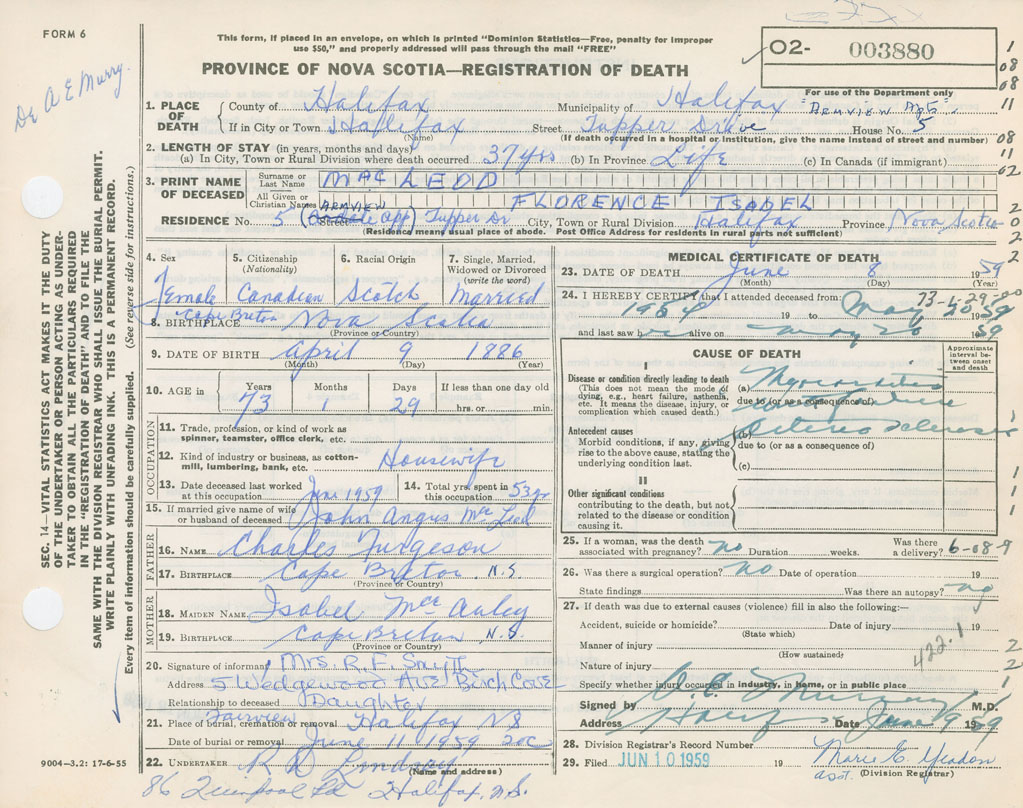 FORM 6
This form, if placed in an envelope, on which is printed "Dominion Statistics—Free, penalty for improper
use $50," and properly addressed will pass through the mail "FREE"
O2- 003880
For use of the Department only
PROVINCE OF NOVA SCOTIA—REGISTRATION OF DEATH
Dr A E Murry.
SEC. 14 — VITAL STATISTICS ACT MAKES IT THE DUTY
OF THE UNDERTAKER OR PERSON ACTING AS UNDER-
TAKER TO OBTAIN ALL THE PARTICULARS REQUIRED
IN THE "REGISTRATION OF DEATH" AND TO FILE THE
SAME WITH THE DIVISION REGISTRAR WHO SHALL ISSUE THE BURIAL PERMIT.
WRITE PLAINLY WITH UNFADING INK. THIS IS A PERMANENT RECORD.
Every item of information should be carefully supplied. (See reverse side for instructions.)
1. PLACE OF DEATH
County of Halifax Municipality of Halifax
"ARMVIEW Apts".
If in City or Town Halifax Street Tupper Drive House No. 5
(Name) (If death occurred in a hospital or institution, give the name instead of street and number)
2. LENGTH OF STAY (in years, months and days)
(a) In City, Town or Rural Division where death occurred 37 yrs (b) In Province Life (c) In Canada (if immigrant)
3. PRINT NAME OF DECEASED
Surname or Last Name MacLEOD
All Given or Christian Names FLORENCE ISABEL
ARMVIEW
RESIDENCE No. 5 Street App) Tupper Dr City, Town or Rural Division Halifax Province Nova Scotia
(Residence means usual place of abode. Post Office Address for residents in rural parts not sufficient)
4. Sex 5. Citizenship (Nationality) 6. Racial Origin 7. Single, Married, Widowed or Divorced (write the word)
Female Canadian Scotch Married
Cape Breton
8. BIRTHPLACE Nova Scotia
(Province or Country)
9. DATE OF BIRTH April 9 1886
(Month) (Day) (Year)
10. AGE in Years Months Days If less than one day old
73 1 29 hrs. or min.
OCCUPATION
11. Trade, profession, or kind of work as
spinner, teamster, office clerk, etc.
12. Kind of industry or business, as cotton-
mill, lumbering, bank, etc. Housewife
13. Date deceased last worked
at this occupation June 1959
14. Total yrs. spent in
this occupation 53 yr
15. If married give name of wife
or husband of deceased John Angus McLeod
FATHER
16. NAME Charles Furgeson
17. BIRTHPLACE Cape Breton N.S.
(Province or Country)
MOTHER
18. MAIDEN NAME Isabel McAuley
19. BIRTHPLACE Cape Breton N.S.
(Province or Country)
20. Signature of informant Mrs. R. F. Smyth
Address 5 Wedgewood Ave Birch Cove
Relationship to deceased Daughter
Fairview
21. Place of burial, cremation or removal Halifax NS
Date of burial or removal June 11 1959
22. UNDERTAKER R D Lindsay
(Name and address)
9004—3.2: 17-6-55
86 Quinpool Rd Halifax, N.S.
MEDICAL CERTIFICATE OF DEATH
23. DATE OF DEATH June 8 1959
(Month) (Day) (Year)
73-1-29-20
24. I HEREBY CERTIFY that I attended deceased from:
1954 19 to May 26 1959
and last saw her alive on May 26 1959
CAUSE OF DEATH
Approximate interval between onset and death
I
Disease or condition directly leading to death
(This does not mean the mode of
dying, e.g., heart failure, asthenia,
etc. It means the disease, injury, or
complication which caused death.)
(a) Myocarditis
due to (or as a consequence of)
Antecedent causes
Morbid conditions, if any, giving
rise to the above cause, stating the
underlying condition last.
(b) Arterio Sclerosis
due to (or as a consequence of)
(c)
II
Other significant conditions
contributing to the death, but not
related to the disease or condition
causing it.
25. If a woman, was the death
associated with pregnancy? no Duration weeks. Was there
a delivery? 6-08-9
26. Was there a surgical operation? no Date of operation 19
State findings Was there an autopsy? no
27. If death was due to external causes (violence) fill in also the following:—
Accident, suicide or homicide? Date of injury 19
(State which)
Manner of injury 422.1
(How sustained)
Nature of injury
Specify whether injury occurred in industry, in home, or in public place
Signed by A. E. Murray M.D.
Address Date June 9 1959
28. Division Registrar's Record Number
29. Filed JUN 10 1959 19 Marie E. Yeadon
asst. (Division Registrar)
1
08
08
11
08
11
02
2
0
2
2
1
1
1
1
2
2
1